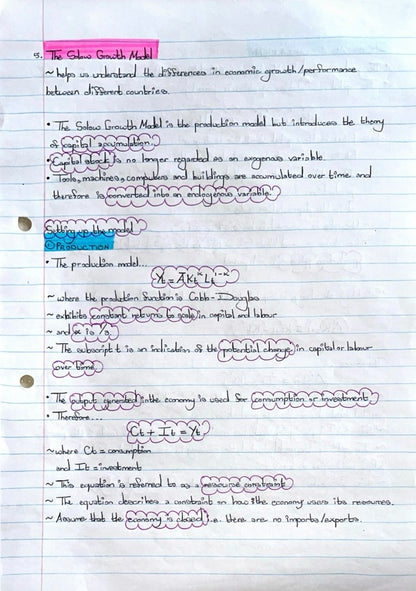 5. The Solow Growth Model
~ helps us understand the differences in economic growth/performance
between different countries.
• The Solow Growth Model is the production model but introduces the theory
of capital accumulation.
• Capital stock is no longer regarded as an exogenous variable.
• Tools, machines, computers and buildings are accumulated over time and
therefore is converted into an endogenous variable.
Setting up the model
① PRODUCTION
• The production model...
Yt = ĀKt^α Lt^1-α
~ where the production function is Cobb-Douglas
~ exhibits constant returns to scale in capital and labour
~ and α is 1/3.
~ The subscript t is an indication of the potential change in capital or labour
over time.
• The output generated in the economy is used for consumption or investment.
• Therefore...
Ct + It = Yt
~ where Ct = consumption
and It = investment
~ This equation is referred to as a resource constraint
~ The equation describes a constraint on how the economy uses its resources.
~ Assume that the economy is closed i.e. there are no imports/exports.